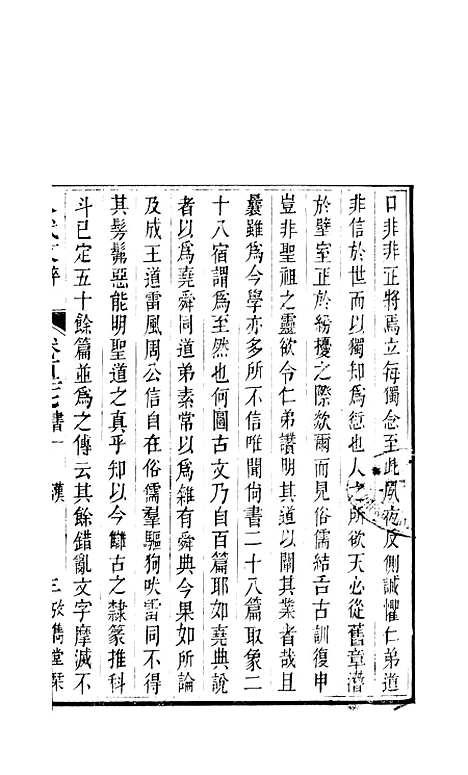 口非非正將焉立每獨念至此夙夜反側誠懼仁弟道
非信於世而以獨知為愆也人之所欲天必從舊章潛
於壁室正於紛擾之際欻爾而見俗儒結舌古訓復申
豈非聖祖之靈欲令仁弟讚明其道以闡其業者哉且
曩雖為今學亦多所不信唯聞尚書二十八篇取象二
十八宿謂為至然也何圖古文乃自百篇耶如堯典說
者以為堯舜同道弟素常以為雜有舜典今果如所論
及成王道雷風周公信自在俗儒羣驅狗吠雷同不得
其髣髴惡能明聖道之真乎知以今讎古之隸篆推科
斗已定五十餘篇並為之傳云其餘錯亂文字摩滅不
卷百七 書一 漢 三 攷儁堂栞